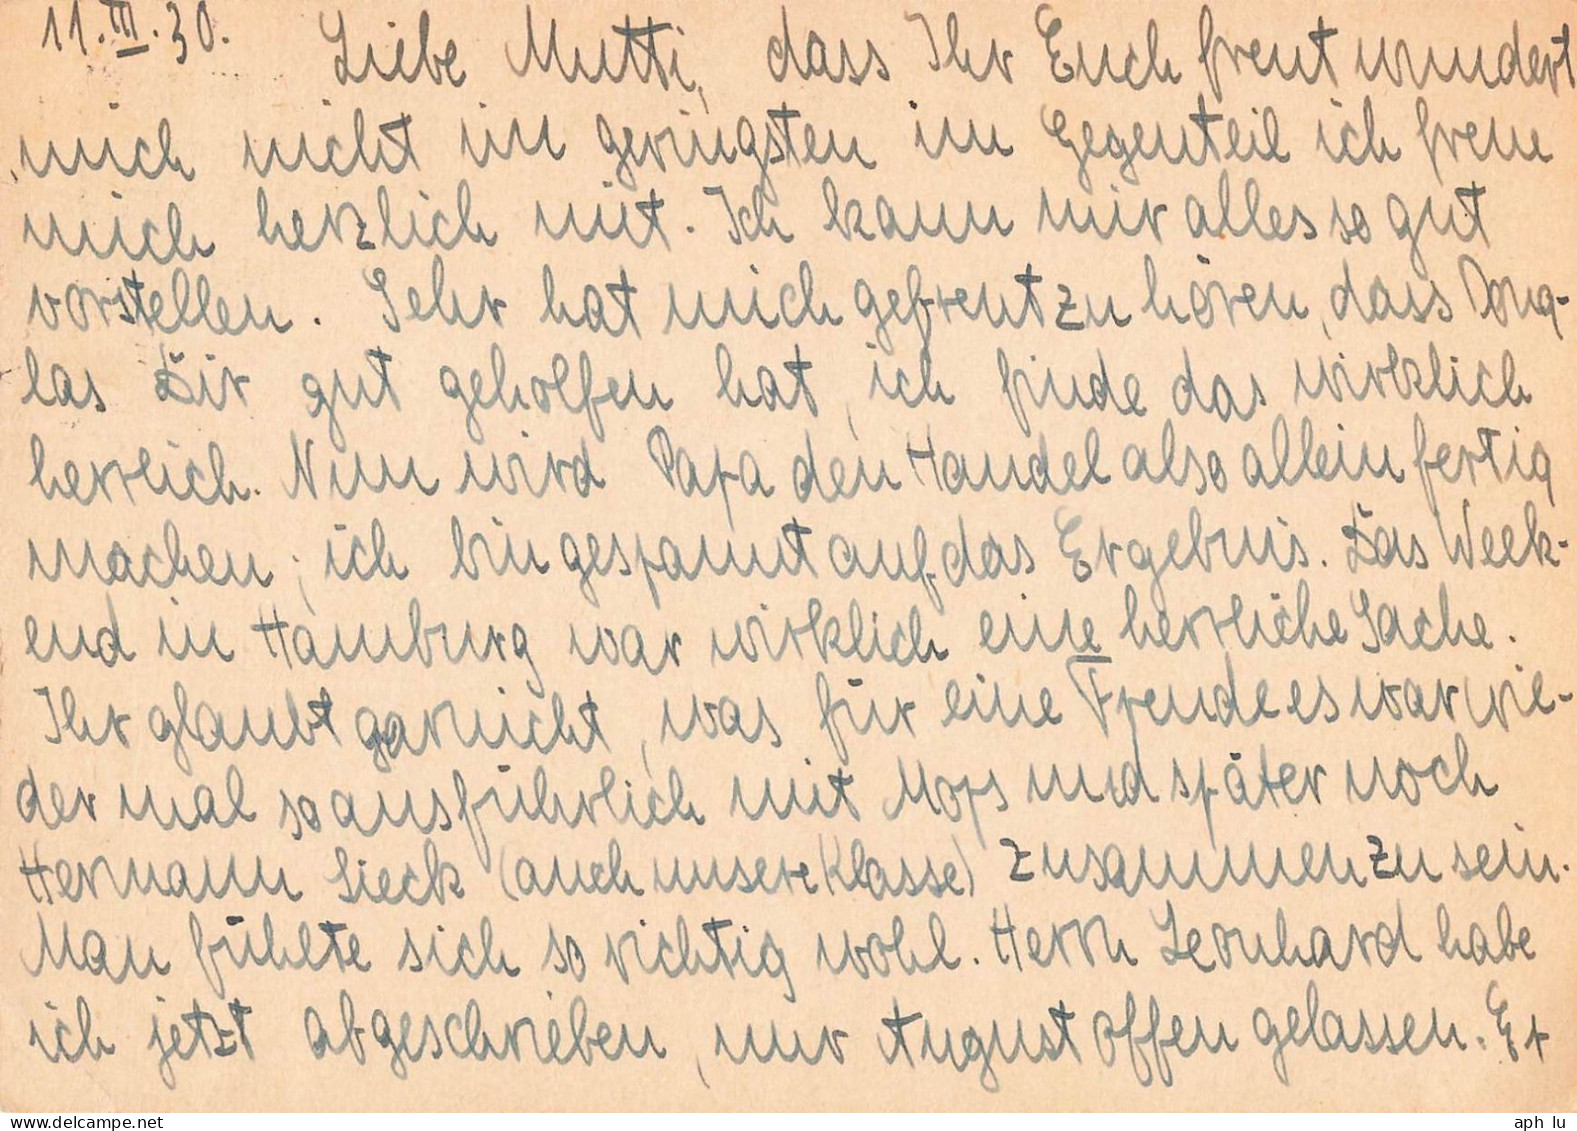 11.III.30. Liebe Mutti, dass Ihr Euch freut wundert
mich nicht im geringsten im Gegenteil ich freue
mich herzlich mit. Ich kann mir alles so gut
vorstellen. Sehr hat mich gefreut zu hören, dass Doug-
las Dir gut geholfen hat, ich finde das wirklich
herrlich. Nun wird Papa den Handel also allein fertig
machen; ich bin gespannt auf das Ergebnis. Das Week-
end in Hamburg war wirklich eine herrliche Sache.
Ihr glaubt garnicht, was für eine Freude es war wie-
der mal so ausführlich mit Mops und später noch
Hermann Sieck (auch unsere Klasse) zusammen zu sein.
Man fühlte sich so richtig wohl. Herrn Leonhard habe
ich jetzt abgeschrieben, nur August offen gelassen. Er
www.delcampe.net
aph_lu